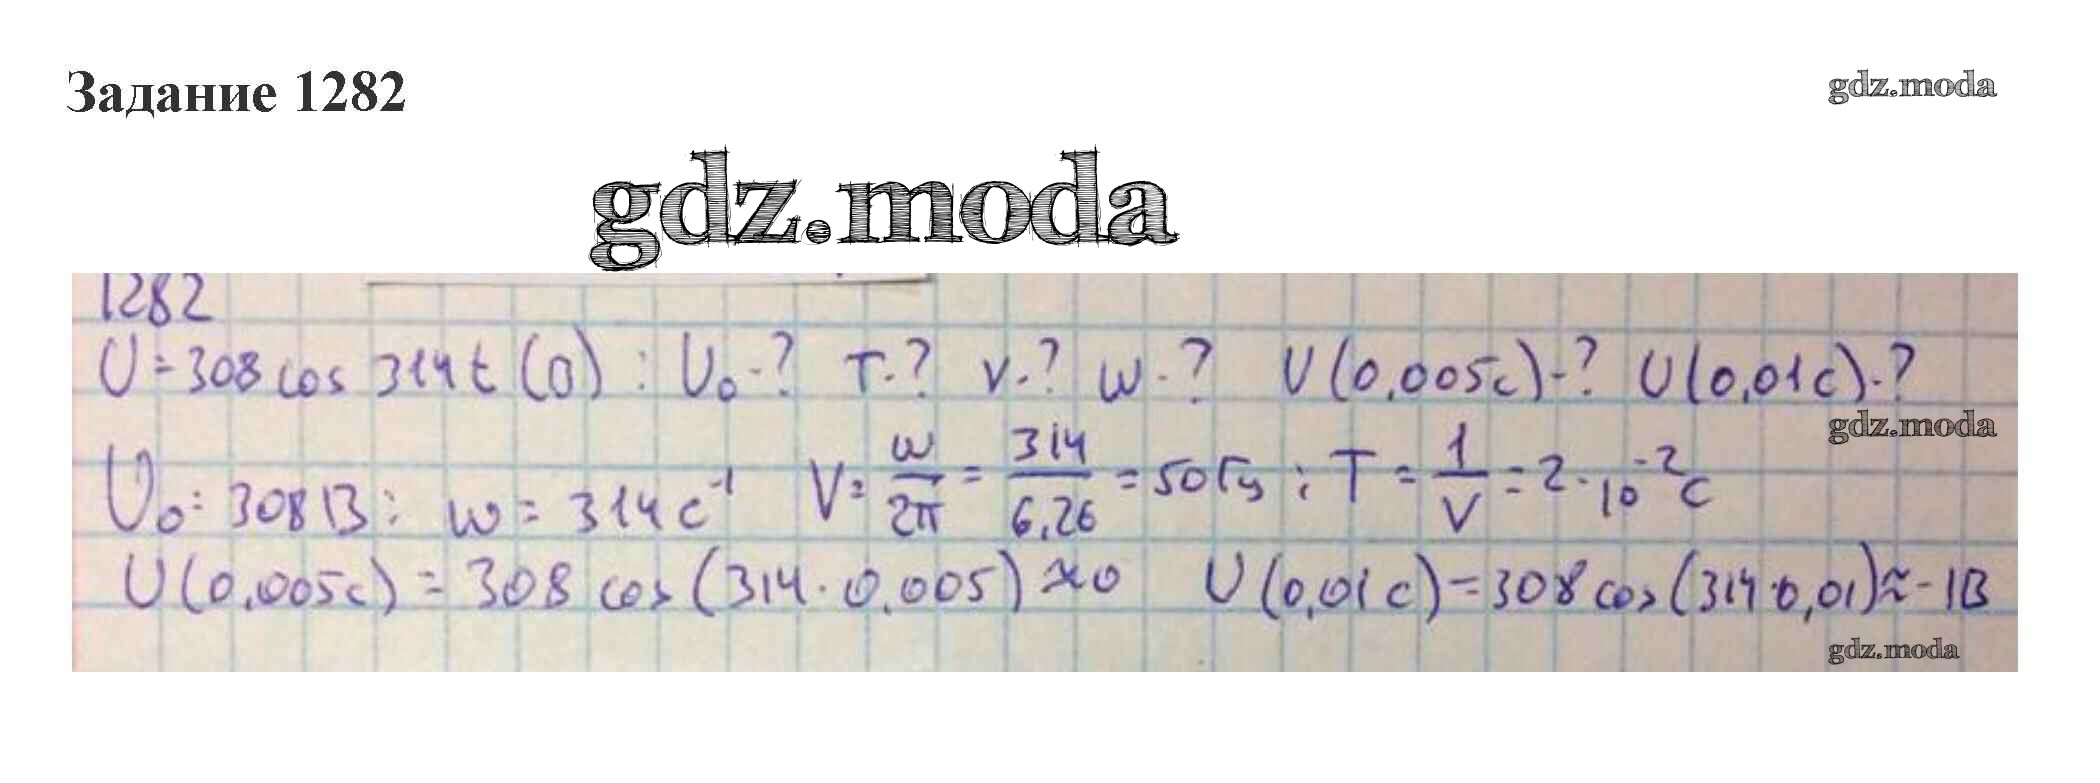 Задание 1282
gdz.moda
gdz.moda
1282
U = 308 cos 314 t (В) : U₀ - ? T - ? ν - ? ω - ? U (0,005 с) - ? U (0,01 с) - ?
gdz.moda
U₀ = 308 В ; ω = 314 с⁻¹ ν = ω/2π = 314/6,26 = 50 Гц ; T = 1/ν = 2 · 10⁻² с
U (0,005 с) = 308 cos (314 · 0,005) ≈ 0 U (0,01 с) = 308 cos (314 · 0,01) ≈ - 1 В
gdz.moda